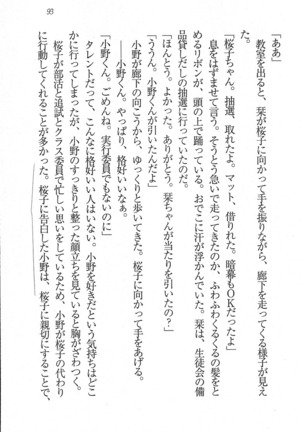 93
「ああ」
教室を出ると、栞が桜子に向かって手を振りながら、廊下を走ってくる様子が見え
た。
「桜子ちゃん。抽選、取れたよ。マット、借りれた。暗幕もOKだったよ」
息をはずませて言う。そうとう急いで走ってきたのか、ふわふわくるくるの髪を
めるリボンが、頭の上で踊っている。おでこに汗が浮かんでいた。栞は、生徒会の備
品貸しだしの抽選に行っていたのだ。
「ほんとう。よかった。ありがとう。栞ちゃんが当たりを引いたの?」
「ううん。小野くんが引いたんだよ」
小野が廊下の向こうから、ゆっくりと歩いてきた。桜子に向かって手をあげる。
――小野くん。やっぱり、格好いいなぁ。
「小野くん。ごめんね。実行委員でもないのに」
タレントだって、こんなに格好いい人はいない。小野を好きだという気持ちはどこ
かに行ったが、小野のすっきりと整った顔立ちを見ていると胸がざわつく。
桜子が部活と追試とクラス委員で忙しい思いをしているため、小野が桜子の代わり
に行動してくれることが多かった。桜子に告白した小野は、桜子に親切にすることで、